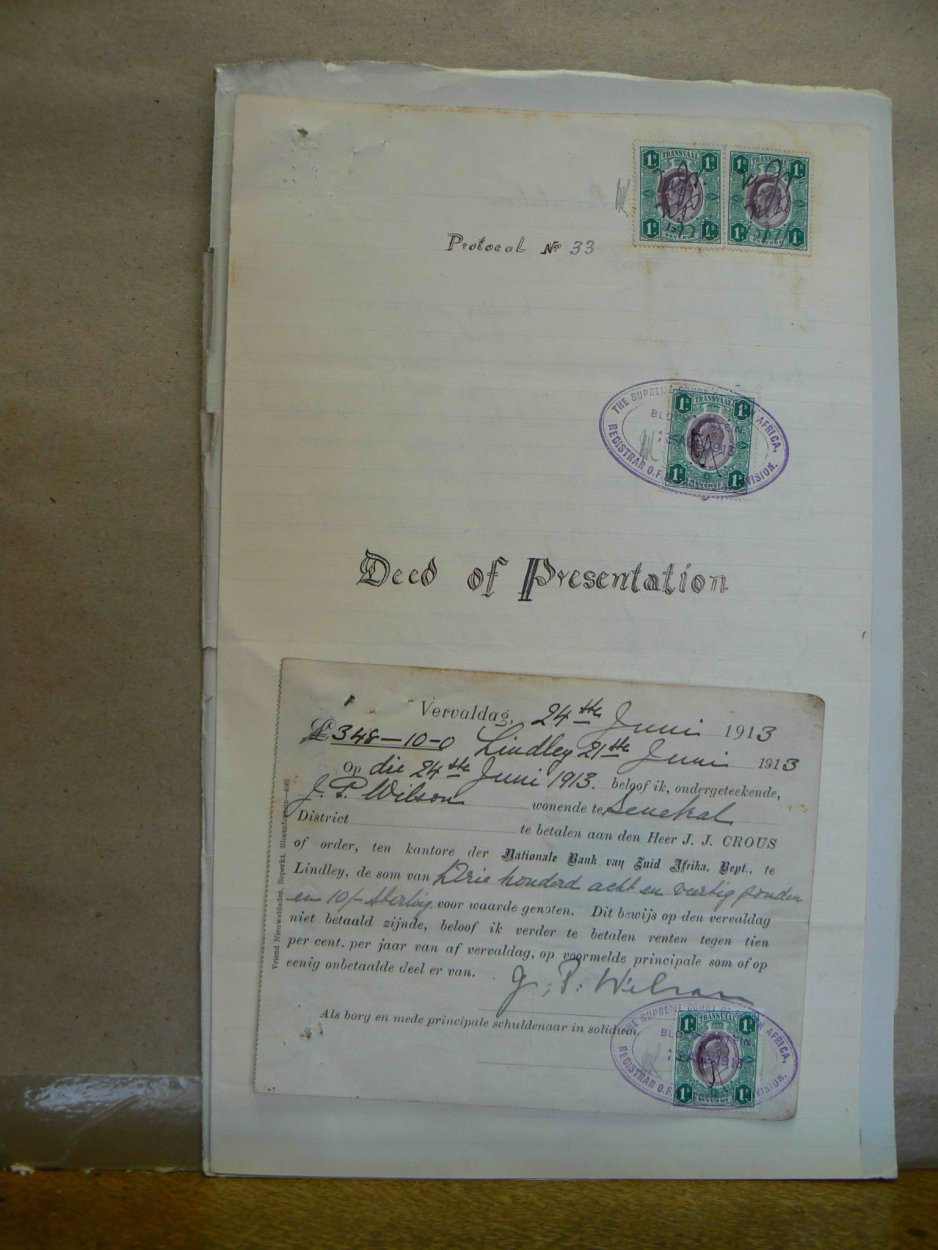 1s TRANSVAAL 1s
1s TRANSVAAL 1s
1s REVENUE 1s
1s REVENUE 1s
Protocol No 33
THE SUPREME COURT OF SOUTH AFRICA,
1s TRANSVAAL 1s
1913
REGISTRAR O.F.S. DIVISION.
1s 1s
Deed of Presentation
Vervaldag, 24th Juni 1913
£348-10-0 Lindley 21th Juni 1913
Op die 24th Juni 1913. beloof ik, ondergeteekende,
J. P. Wilson wonende te Senekal
District te betalen aan den Heer J. J. CROUS
of order, ten kantore der Nationale Bank van Zuid Afrika, Bept., te
Lindley, de som van Drie honderd acht en veertig ponden
en 10/- sterling voor waarde genoten. Dit bewijs op den vervaldag
niet betaald zijnde, beloof ik verder te betalen renten tegen tien
per cent. per jaar van af vervaldag, op voormelde principale som of op
eenig onbetaalde deel er van.
J. P. Wilson
Als borg en mede principale schuldenaar in solidum
Vriend Nieuwsbladen, Beperkt, Bloemfontein
THE SUPREME COURT OF SOUTH AFRICA,
1s TRANSVAAL 1s
BLOEMFONTEIN
1913
REGISTRAR O.F.S. DIVISION.
1s REVENUE 1s